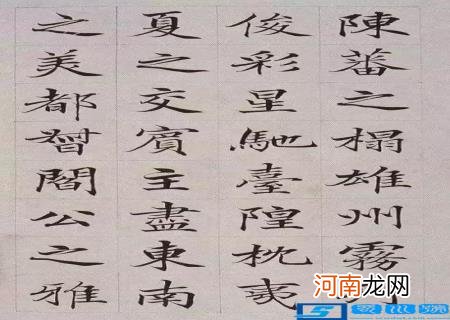 陳蕃之榻雄州霧
俊彩星馳臺隍枕夷
夏之交賓主盡東南
之美都督閻公之雅
河南龙网